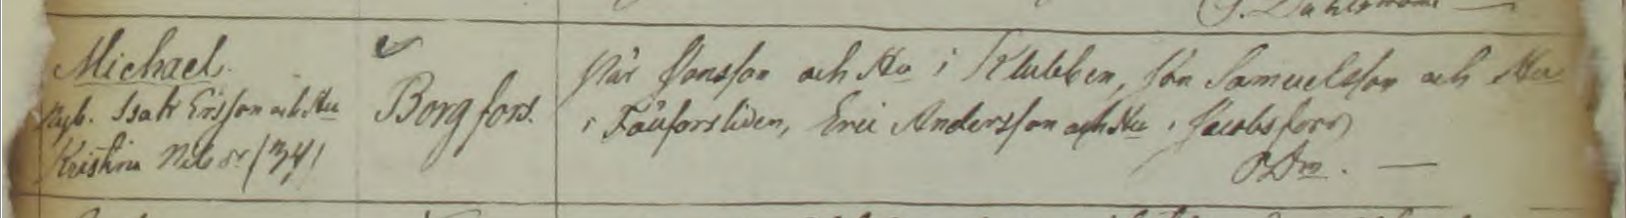 Michael.
Nyb. Isak Ersson och Hu
Kristina Nilsdr (34)
Borgfors.
Pär Jonsson och Hu i Klubben, Jon Samuelsson och Hu
i Fäuforsliden, Eric Andersson och Hu i Jacobsfors